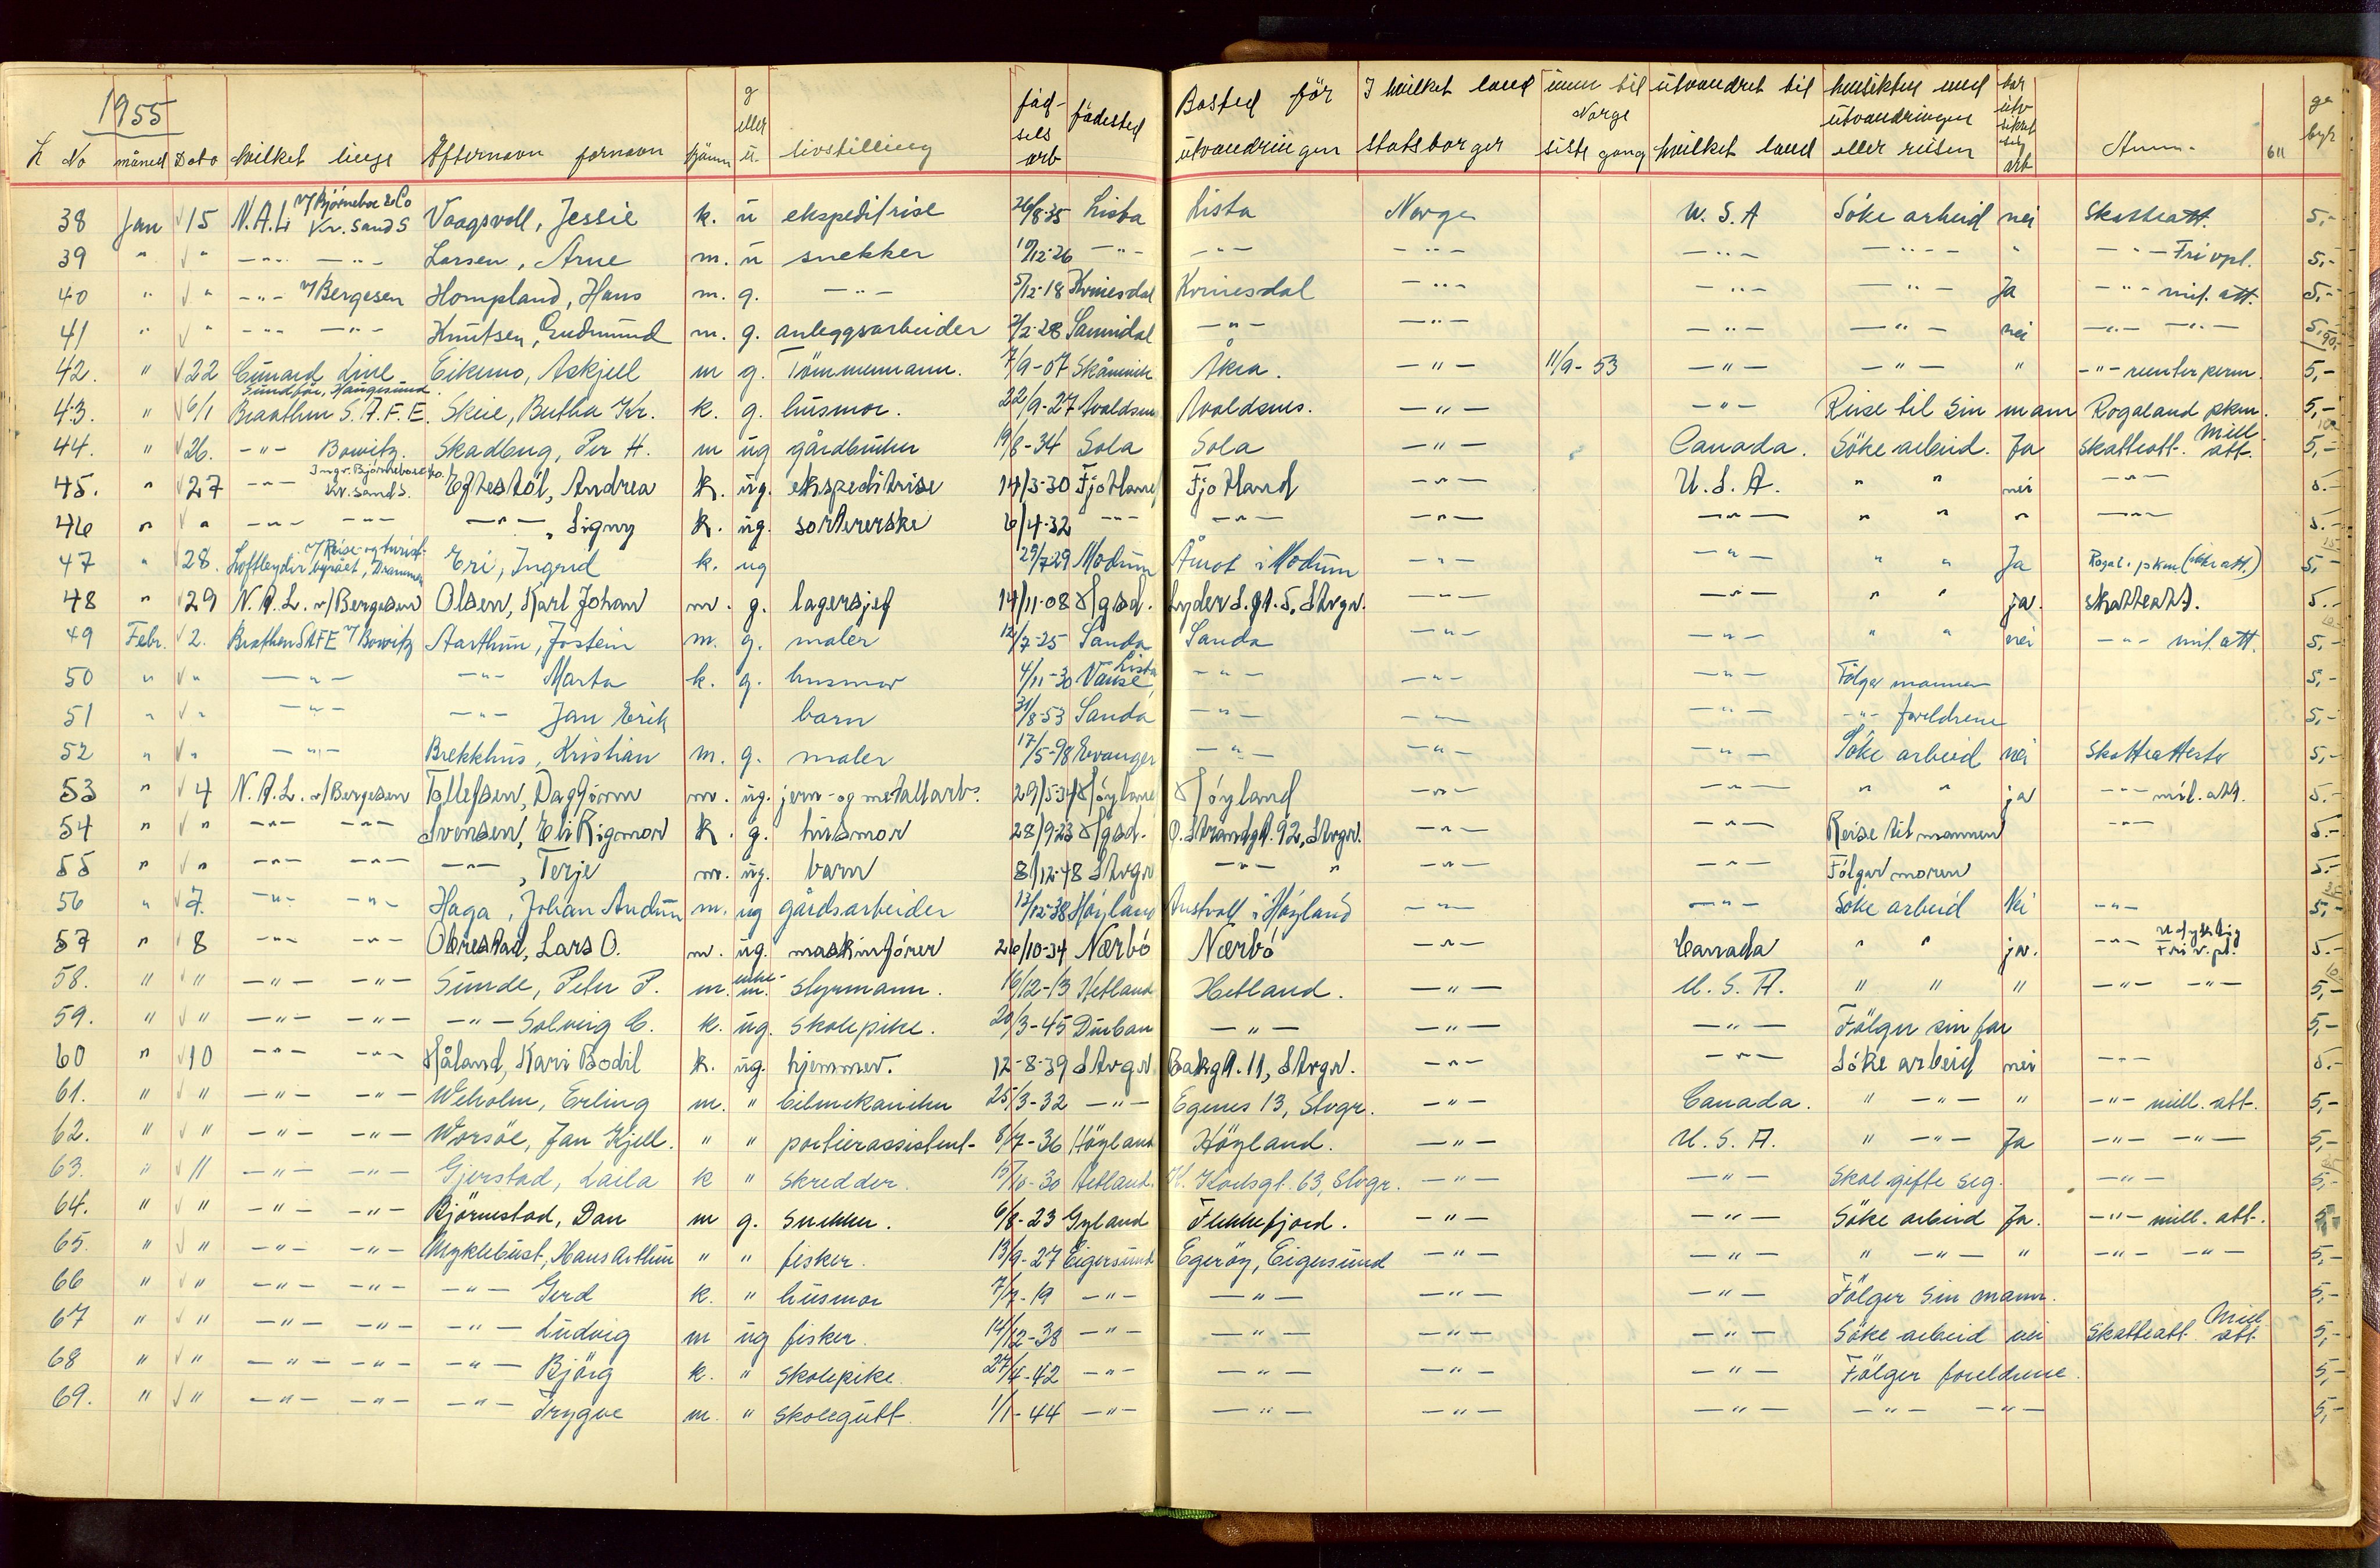 1955
L No måned Dato hvilket linge Efternavn fornavn kjønn g eller u livstilling fød-sels arb fødested Bosted før utvandringen I hvilket land statsborger innr til Norge siste gang utvandret til hvilket land hensikten med utvandringen eller reisen har utv sikret seg arb Anm. ge byr
38 Jan 15 N.A.L. v/ Bjørneboe & Co Kr. Sand S Vaagsvoll, Jessie k. u ekspeditrise 26/8-35 Lista Lista Norge U.S.A Søke arbeid nei Skatteatt. 5,-
39 " " -"- -"- Larsen, Arne m. u snekker 10/12-26 -"- -"- -"- -"- -"- " -"- Fri vpl. 5,-
40 " " -"- v/Bergesen Hompland, Hans m. g. -"- 5/12-18 Kvinesdal Kvinesdal -"- -"- -"- Ja -"- mil. att. 5,-
41 " " -"- -"- Knutsen, Gudmund m. g. anleggsarbeider 2/2-28 Sannidal -"- -"- -"- -"- nei -"- -"- 5,-
42. " 22 Cunard Line Sundfør, Haugesund. Eikemo, Askjell m g. Tømmermann. 7/9-07 Skånevik Åkra. -"- 11/9-53 -"- -"- " -"- reenter perm. 5,-
43. " 6/1 Braathen S.A.F.E. Skeie, Bertha Kr. k. g. husmor. 22/9-27 Avaldsnes Avaldsnes. -"- -"- Reise til sin mann Rogaland pkm. 5,-
44. " 26. -"- Bowitz. Skadberg, Per H. m ug gårdbruker 19/8-34 Sola Sola -"- Canada. Søke arbeid. Ja Skatteatt. Mill. att. 5,-
45. " 27 -"- Ingv. Bjørneboe & Co. Kr. Sand S. Eftestøl, Andrea k. ug. ekspeditrise 14/3-30 Fjotland Fjotland -"- U.S.A. " " nei -"- 5.-
46 " " -"- -"- -"-, Signy k. ug. sortererske 6/4-32 -"- -"- -"- -"- " " " -"- 5.-
47 " 28. Loftleydir v/Reise- og turist-byrået, Drammen Eri, Ingrid k. ug 29/7-29 Modum Åmot i Modum -"- -"- " " Ja Rogal. pkm 5,-
48 " 29 N.A.L. v/Bergesen Olsen, Karl Johan m. g. lagersjef 14/11-08 Hgsd. Lyder S. gt. 5, Stvgr. -"- -"- " " ja. skatteatt. 5.-
49 Febr. 2. Brathen SAFE v/Bowitz Aarthun, Jostein m. g. maler 12/7-25 Sanda Sanda -"- -"- " " nei -"- mil. att. 5,-
50 " " -"- -"- Marta k. g. husmor 4/11-30 Vanse, Lista -"- -"- -"- Følger mannen 5,-
51 " " -"- -"- Jan Erik barn 31/8-53 Sanda -"- -"- -"- -"- foreldrene 5,-
52 " " -"- Brekkhus, Kristian m. g. maler 17/5-98 Evanger -"- -"- -"- Søke arbeid nei Skatteattest 5,-
53 " 4 N.A.L. v/Bergesen Tollefsen, Dagfinn m. ug. jern- og metallarb. 29/5-34 Høyland Høyland -"- -"- " " ja -"- mil. att. 5.-
54 " " -"- -"- Svensen, Eli Rigmor k. g. husmor 28/9-23 Hgsd. Ø. Strandgt. 92, Stvgr. -"- -"- Reise til mannen -"- 5.-
55 " " -"- -"- -"-, Terje m. ug. barn 8/12-48 Stvgr -"- " -"- -"- Følger moren 5.-
56 " 7. -"- -"- Haga, Johan Audun m. ug gårdsarbeider 13/12-38 Høyland Austvoll i Høyland -"- -"- Søke arbeid Nei -"- 5,-
57 " 8 -"- -"- Obrestad, Lars O. m. ug. maskinfører 26/10-34 Nærbø Nærbø -"- Canada " " ja. -"- Udyktig Fri v.pl. 5.-
58. " " -"- -"- Sunde, Peter P. m. enke-m. styrmann. 16/12-13 Hetland Hetland. -"- U.S.A. " " " -"- -"- 5,-
59. " " -"- -"- -"- Solveig C. k. ug. skolepike. 20/3-45 Durban -"- -"- -"- Følger sin far 5,-
60 " 10 -"- -"- Håland, Kari Bodil k. ug. hjemmev. 12-8-39 Stvgr Bakgt. 11, Stvgr. -"- -"- Søke arbeid nei -"- 5.-
61. " " -"- -"- Weholm, Erling m. " bilmekaniker 25/3-32 -"- Egenes 13, Stvgr. -"- Canada. " -"- " -"- mill. att. 5,-
62. " " -"- -"- Worsøe, Jan Kjell. " " portierassistent- 8/7-36 Høyland Høyland. -"- U.S.A. " -"- Ja -"- -"- 5,-
63. " 11 -"- -"- Gjerstad, Laila k " skredder. 15/10-30 Hetland. -"- -"- Skal gifte seg. -"- 5,-
64. " " -"- -"- Bjørnestad, Dan m g. snekker. 6/8-23 Gyland Flekkefjord. -"- -"- Søke arbeid Ja. -"- mill. att. 5,-
65. " " -"- -"- Myklebust, Hans Arthur " " fisker. 13/9-27 Eigersund Egerøy, Eigersund -"- -"- " -"- " -"- -"- 5,-
66 " " -"- -"- -"- Gerd k. " husmor 7/7-19 -"- -"- -"- -"- Følger sin mann. 5,-
67 " " -"- -"- -"- Ludvig m ug fisker. 14/12-38 -"- -"- -"- -"- Søke arbeid nei Skatteatt. Mill. att. 5,-
68 " " -"- -"- -"- Bjørg k. " skolepike. 27/4-42 -"- -"- -"- -"- Følger foreldrene. 5,-
69. " " -"- -"- -"- Trygve m. " skolegutt. 1/1-44 -"- -"- -"- -"- -"- -"- 5,-